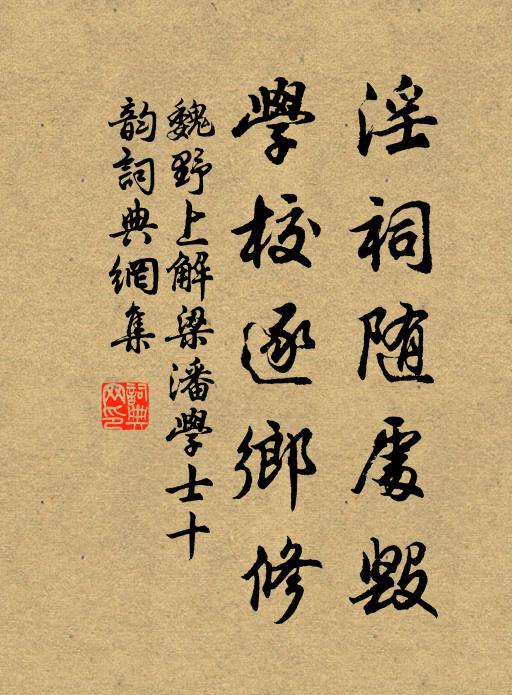 淫祠随處毀
學校逐鄉修
魏野上解梁潘學士十
韵詞典網集
詞典
网印